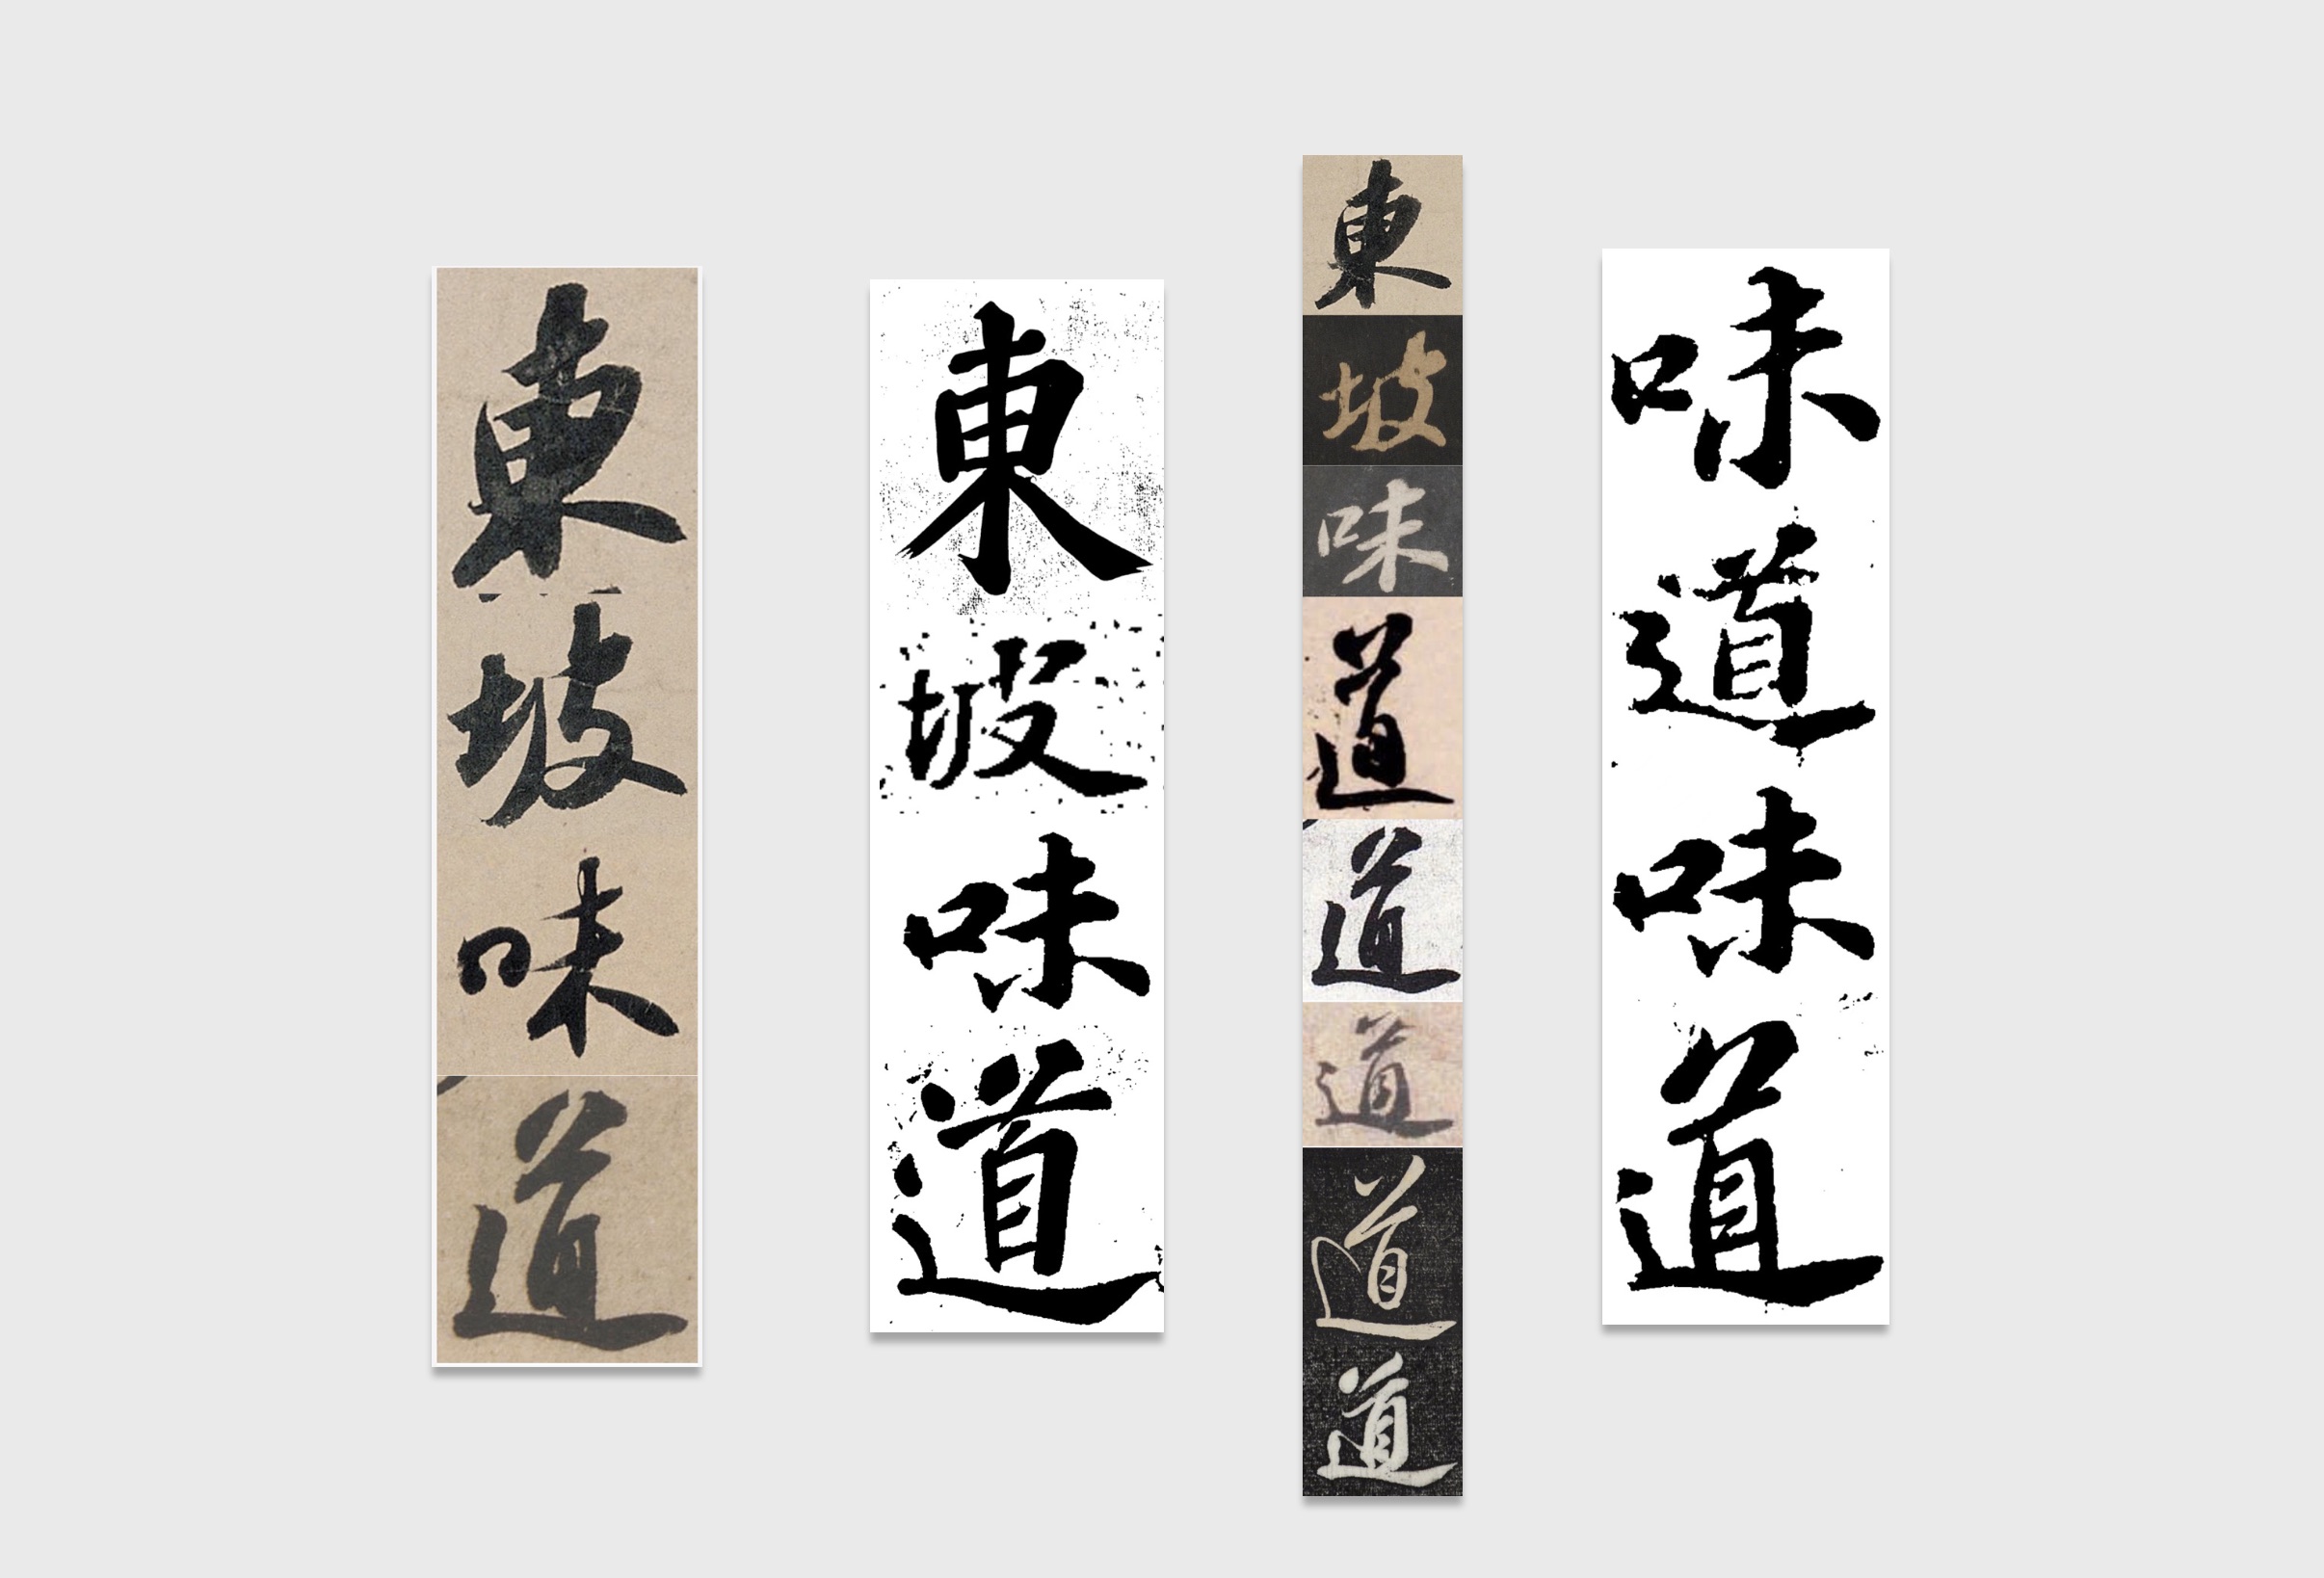 東坡味道
東坡味道
東坡味道道道道道
味道味道